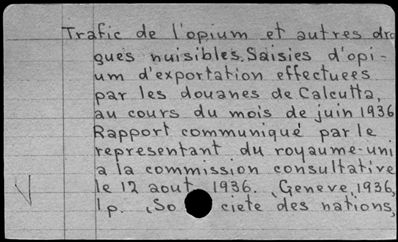 Trafic de l'opium et autres dro
ques nuisibles. Saisies d'opi-
um d'exportation effectuees
par les douanes de Calcutta,
au cours du mois de juin 1936
Rapport communiqué par le
representant du royaume-uni
a la commission consultative
le 12 aout 1936. Geneve, 1936,
1p. So ciete des nations,